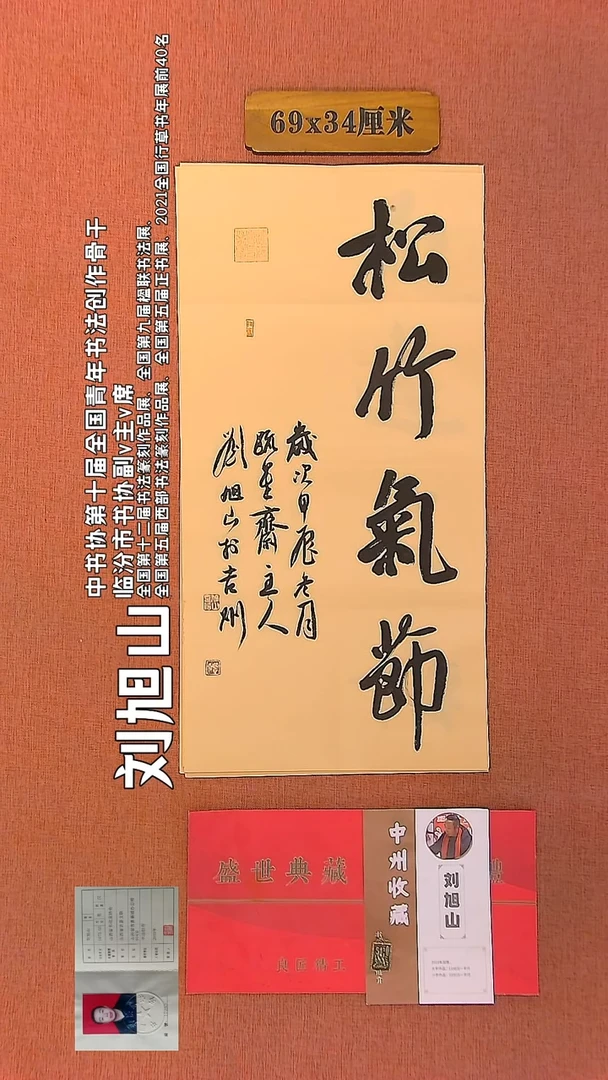 69x34厘米
松竹氣節
歲次甲辰冬月
甌臺齋主人
劉旭山於吉州
刘旭山
中书协第十届全国青年书法创作骨干
临汾市书协副v主v席
全国第十二届书法篆刻作品展、全国第九届楹联书法展、
全国第五届西部书法篆刻作品展、全国第五届正书展、2021全国行草书年展前40名
盛世典藏
中州收藏
刘旭山